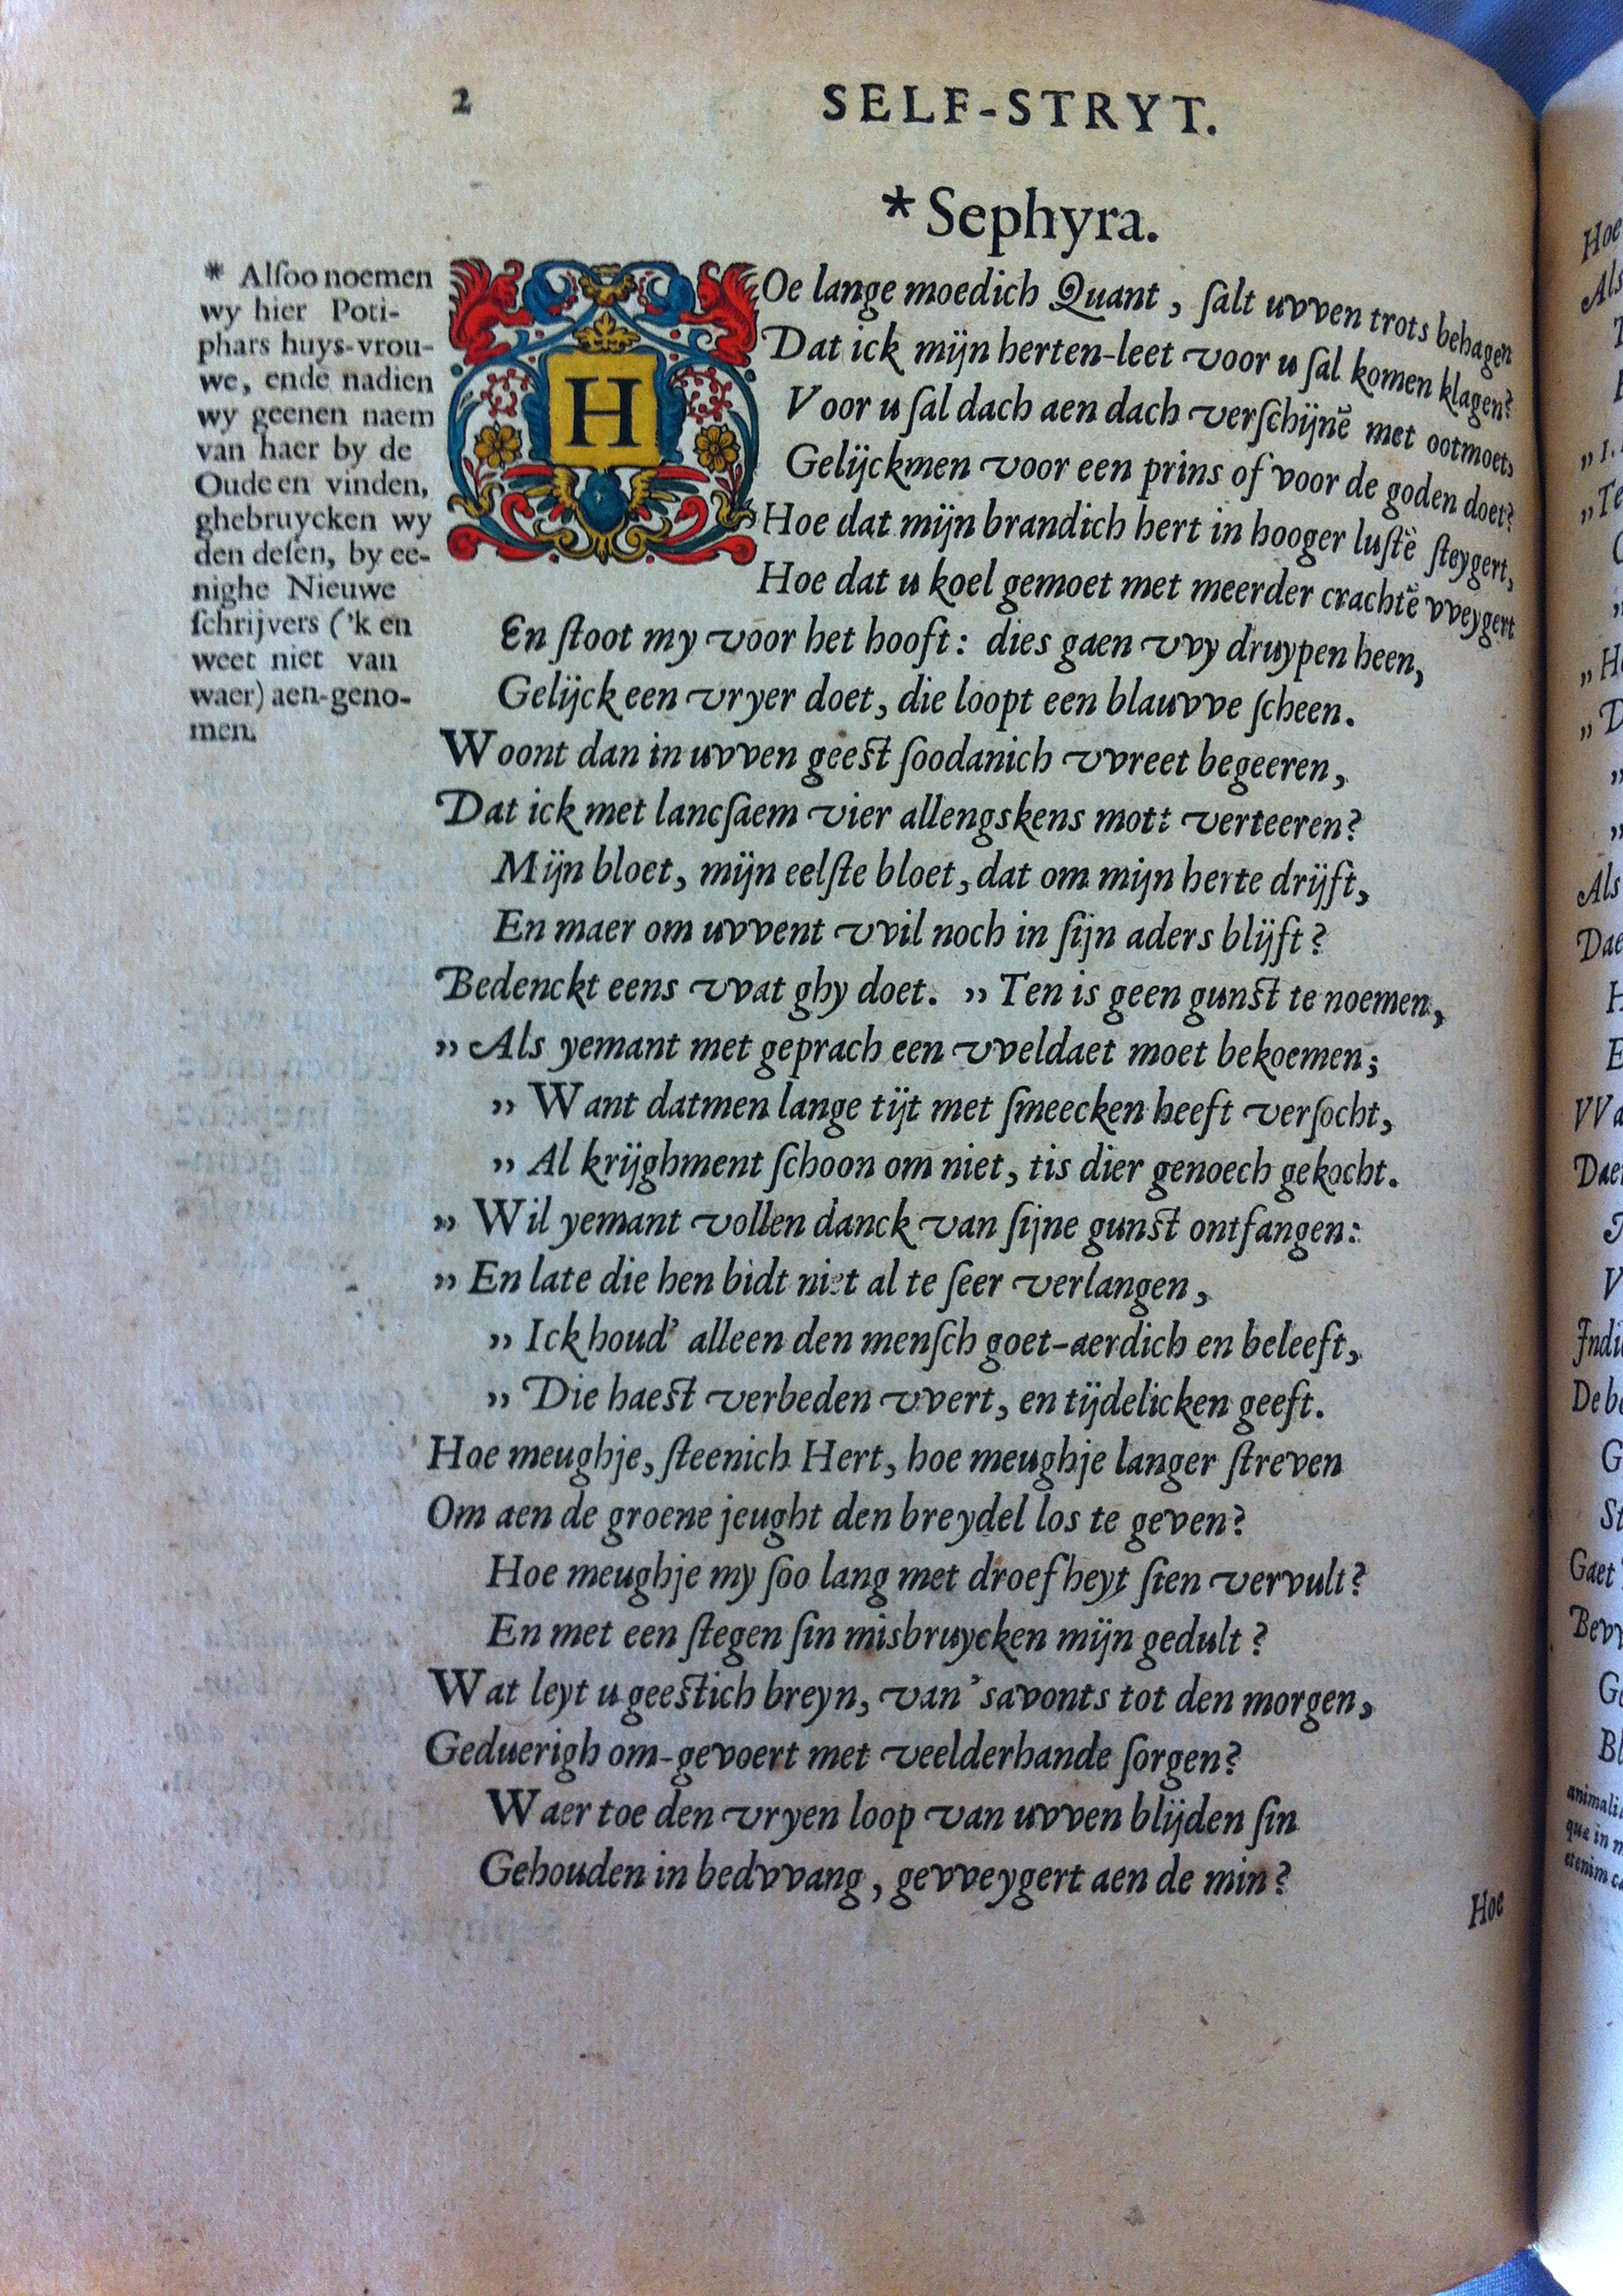 2
SELF-STRYT.
*Sephyra.
* Alſoo noemen
wy hier Poti-
phars huys-vrou-
we, ende nadien
wy geenen naem
van haer by de
Oude en vinden,
ghebruycken wy
den deſen, by ee-
nighe Nieuwe
ſchrijvers ('k en
weet niet van
waer) aen-geno-
men.
HOe lange moedich Quant, ſalt uvven trots behagen
Dat ick mijn herten-leet voor u ſal komen klagen?
Voor u ſal dach aen dach verſchijnē met ootmoet,
Gelijckmen voor een prins of voor de goden doet?
Hoe dat mijn brandich hert in hooger luſtē ſteygert,
Hoe dat u koel gemoet met meerder crachtē vveygert
En ſtoot my voor het hooft: dies gaen vvy druypen heen,
Gelijck een vryer doet, die loopt een blauvve ſcheen.
Woont dan in uvven geest ſoodanich vvreet begeeren,
Dat ick met lancſaem vier allengskens mott verteeren?
Mijn bloet, mijn eelſte bloet, dat om mijn herte drijft,
En maer om uvvent vvil noch in ſijn aders blijft?
Bedenckt eens vvat ghy doet. ,, Ten is geen gunst te noemen,
,, Als yemant met geprach een vveldaet moet bekoemen;
,, Want datmen lange tijt met ſmeecken heeft verſocht,
,, Al krijghment ſchoon om niet, tis dier genoech gekocht.
,, Wil yemant vollen danck van ſijne gunst ontfangen:
,, En late die hen bidt niet al te ſeer verlangen,
,, Ick houd' alleen den menſch goet-aerdich en beleeft,
,, Die haest verbeden vvert, en tijdelicken geeft.
Hoe meughje, ſteenich Hert, hoe meughje langer ſtreven
Om aen de groene jeught den breydel los te geven?
Hoe meughje my ſoo lang met droefheyt ſien vervult?
En met een ſtegen ſin misbruycken mijn gedult?
Wat leyt u geestich breyn, van 'savonts tot den morgen,
Geduerigh om-gevoert met veelderhande ſorgen?
Waer toe den vryen loop van uvven blijden ſin
Gehouden in bedvvang, gevveygert aen de min?
Hoe
Hoe
Als
Als
Dae
H
E
VVa
Dae
V
Indi
De be
G
St
Gaet
Bevv
Ge
Bl
animali
que in
etenim